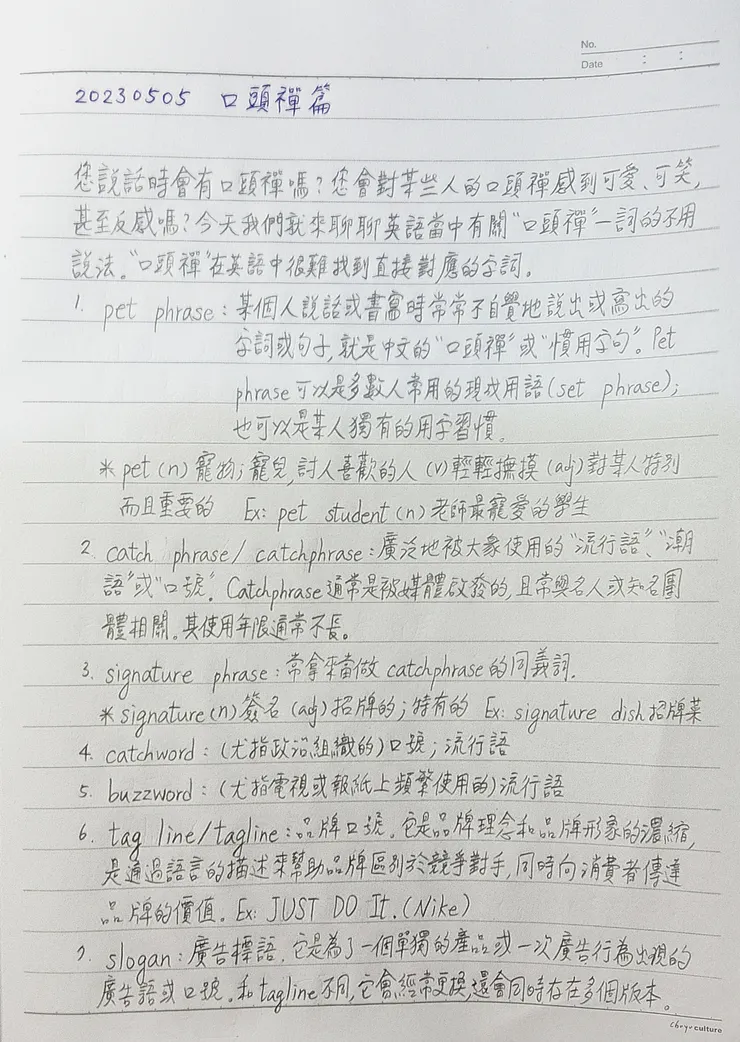 No.
Date : :
20230505 口頭禪篇
您說話時會有口頭禪嗎?您會對某些人的口頭禪感到可愛、可笑,
甚至反感嗎?今天我們就來聊聊英語當中有關"口頭禪"一詞的不用
說法。"口頭禪"在英語中很難找到直接對應的字詞。
1. pet phrase:某個人說話或書寫時常常不自覺地說出或寫出的
字詞或句子,就是中文的"口頭禪"或"慣用字句"。Pet
phrase可以是多數人常用的現成用語(set phrase);
也可以是某人獨有的用字習慣。
*pet(n)寵物;寵兒,討人喜歡的人 (v)輕輕撫摸 (adj)對某人特別
而且重要的 Ex: pet student(n)老師最寵愛的學生
2. catch phrase/ catchphrase:廣泛地被大眾使用的"流行語"、"潮
語"或"口號"。Catchphrase通常是被媒體啟發的,且常與名人或知名團
體相關。其使用年限通常不長。
3. signature phrase:常拿來當做catchphrase的同義詞.
*signature(n)簽名 (adj)招牌的;特有的 Ex: signature dish招牌菜
4. catchword:(尤指政治組織的)口號;流行語
5. buzzword:(尤指電視或報紙上頻繁使用的)流行語
6. tag line/tagline:品牌口號。它是品牌理念和品牌形象的濃縮,
是通過語言的描述來幫助品牌區別於競爭對手,同時向消費者傳達
品牌的價值。Ex: JUST DO It.(Nike)
7. slogan:廣告標語。它是為了一個單獨的產品或一次廣告行為出現的
廣告語或口號。和tagline不同,它會經常更換,還會同時存在多個版本。
culture